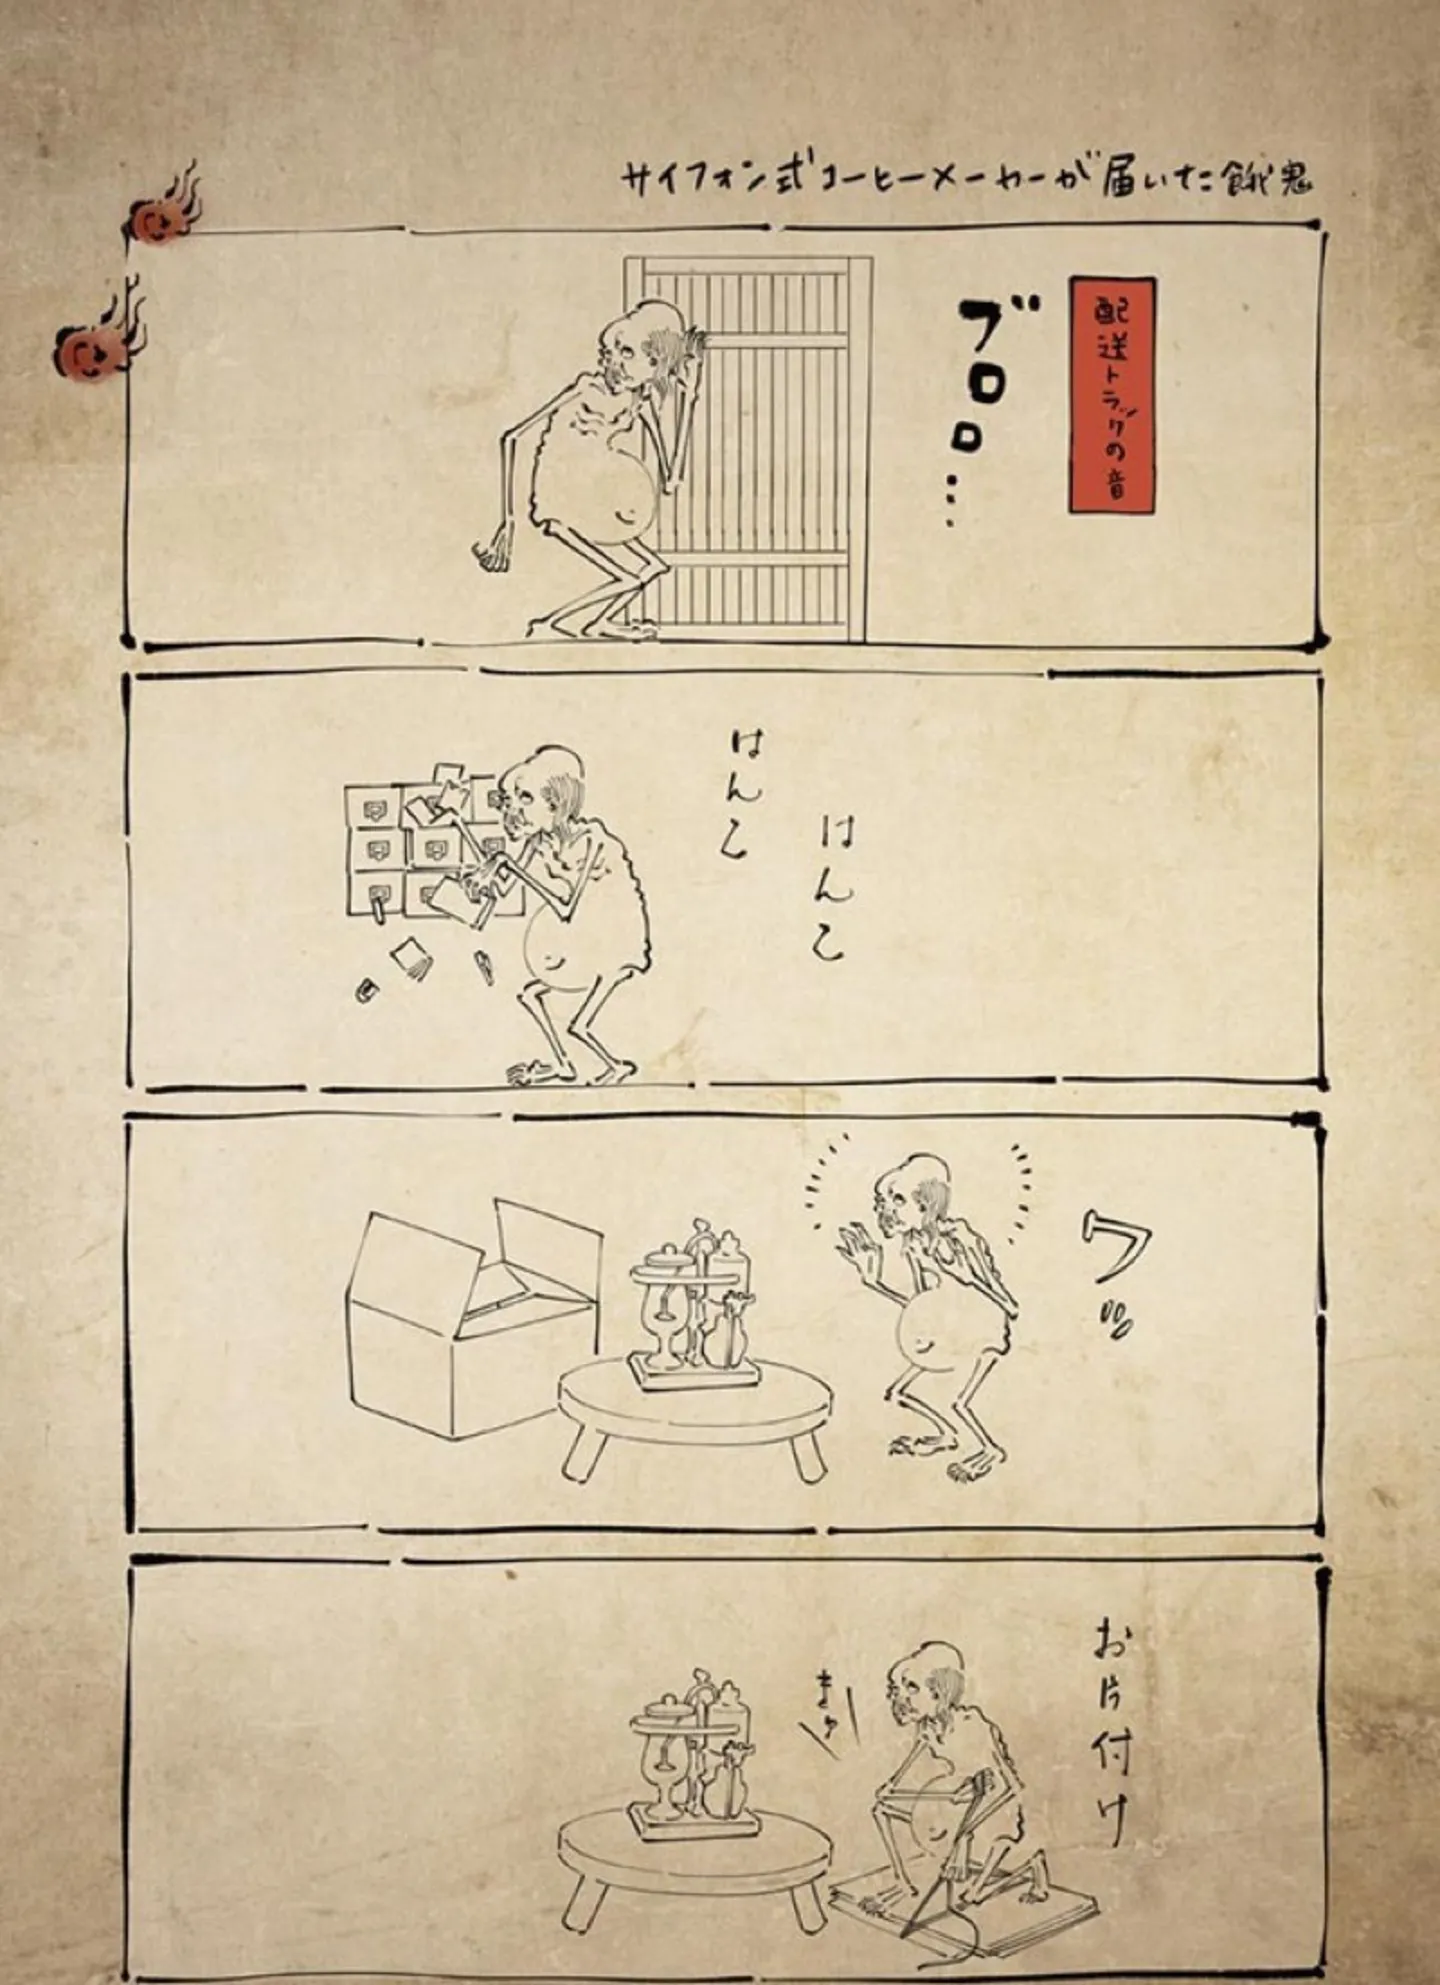 サイフォン式コーヒーメーカーが届いた餓鬼
配送トラックの音
ブロロ…
はんこ
はんこ
ワッ
お片付け
きゅ